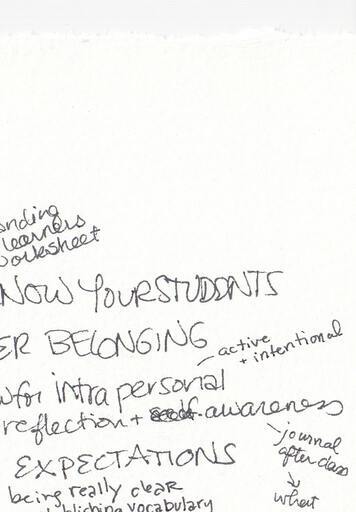 nding
learners
worksheet
NOW YOUR STUDENTS
ER BELONGING
active
+ intentional
w for intra personal
reflection + awareness
journal
after class
EXPECTATIONS
being really clear
what
blishing vocabulary